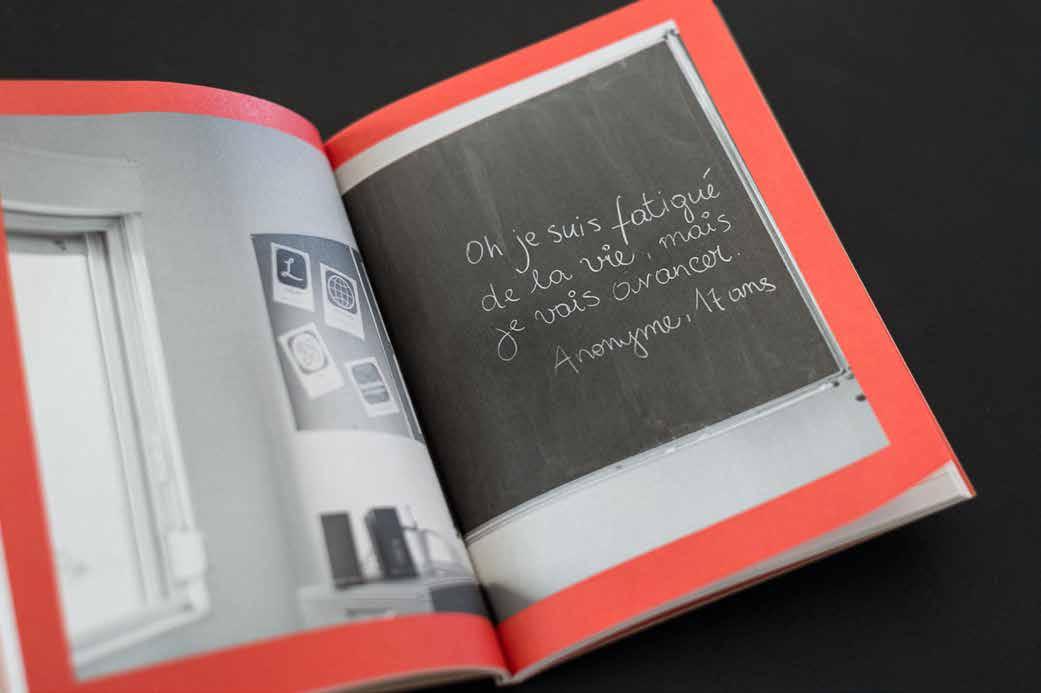 L
Oh je suis fatigué
de la vie, mais
je vais avancer.
Anonyme, 17 ans